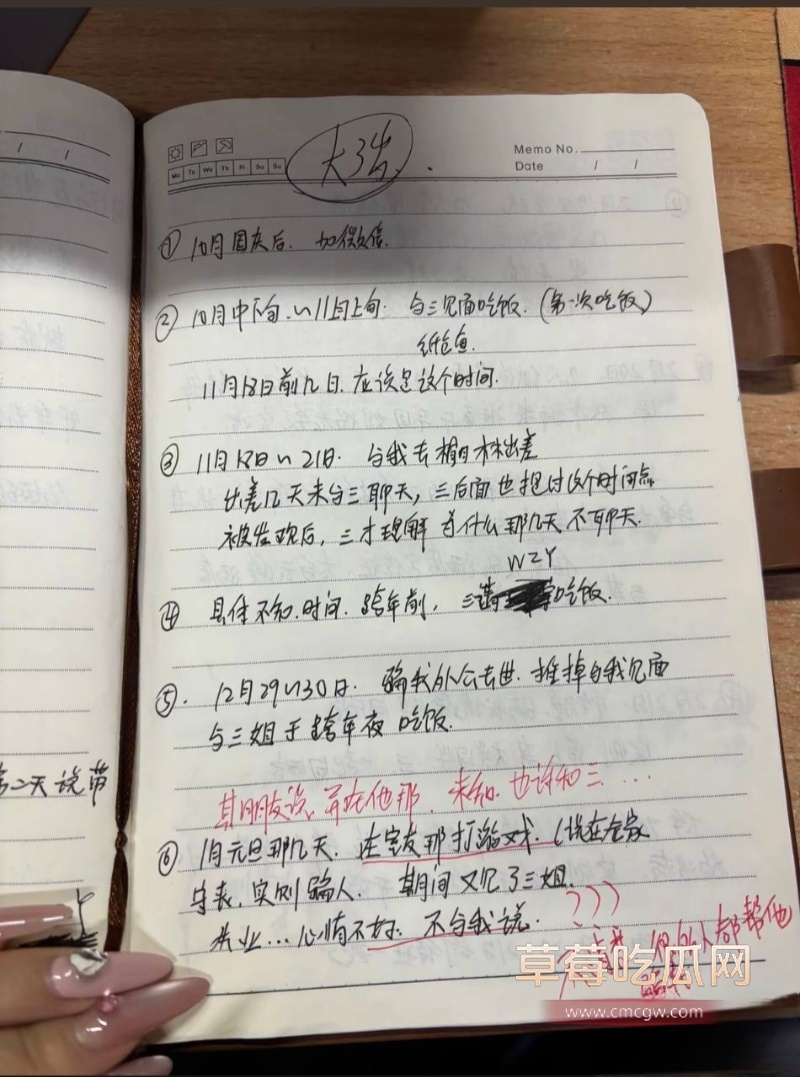 Memo No.
Mo Tu We Th Fr Sa Su
Date / /
① 10月国庆后. 加微信.
② 10月中下旬.~11月上旬. 与三见面吃饭.(第一次吃饭)
纸包鱼.
11月18日前几日.应该是这个时间.
③ 11月18日~21日. 与我去榆林出差
出差几天未与三聊天,三后面也提过这个时间点
被发现后,三才理解 为什么那几天不聊天.
WZY
④ 具体不知.时间.跨年前, 三请 吃饭.
⑤. 12月29~30日. 骗我外公去世.推掉与我见面
与三姐于跨年夜 吃饭.
第二天说带
其朋友说,并在他那.未知.也许和三...
⑥ 1月元旦那几天. 在室友那打游戏.(说在全家
守丧,实则骗人. 期间又见了三姐.
失业...心情不好. 不与我说. ???
人都帮他
草莓吃瓜网
www.cmcgw.com